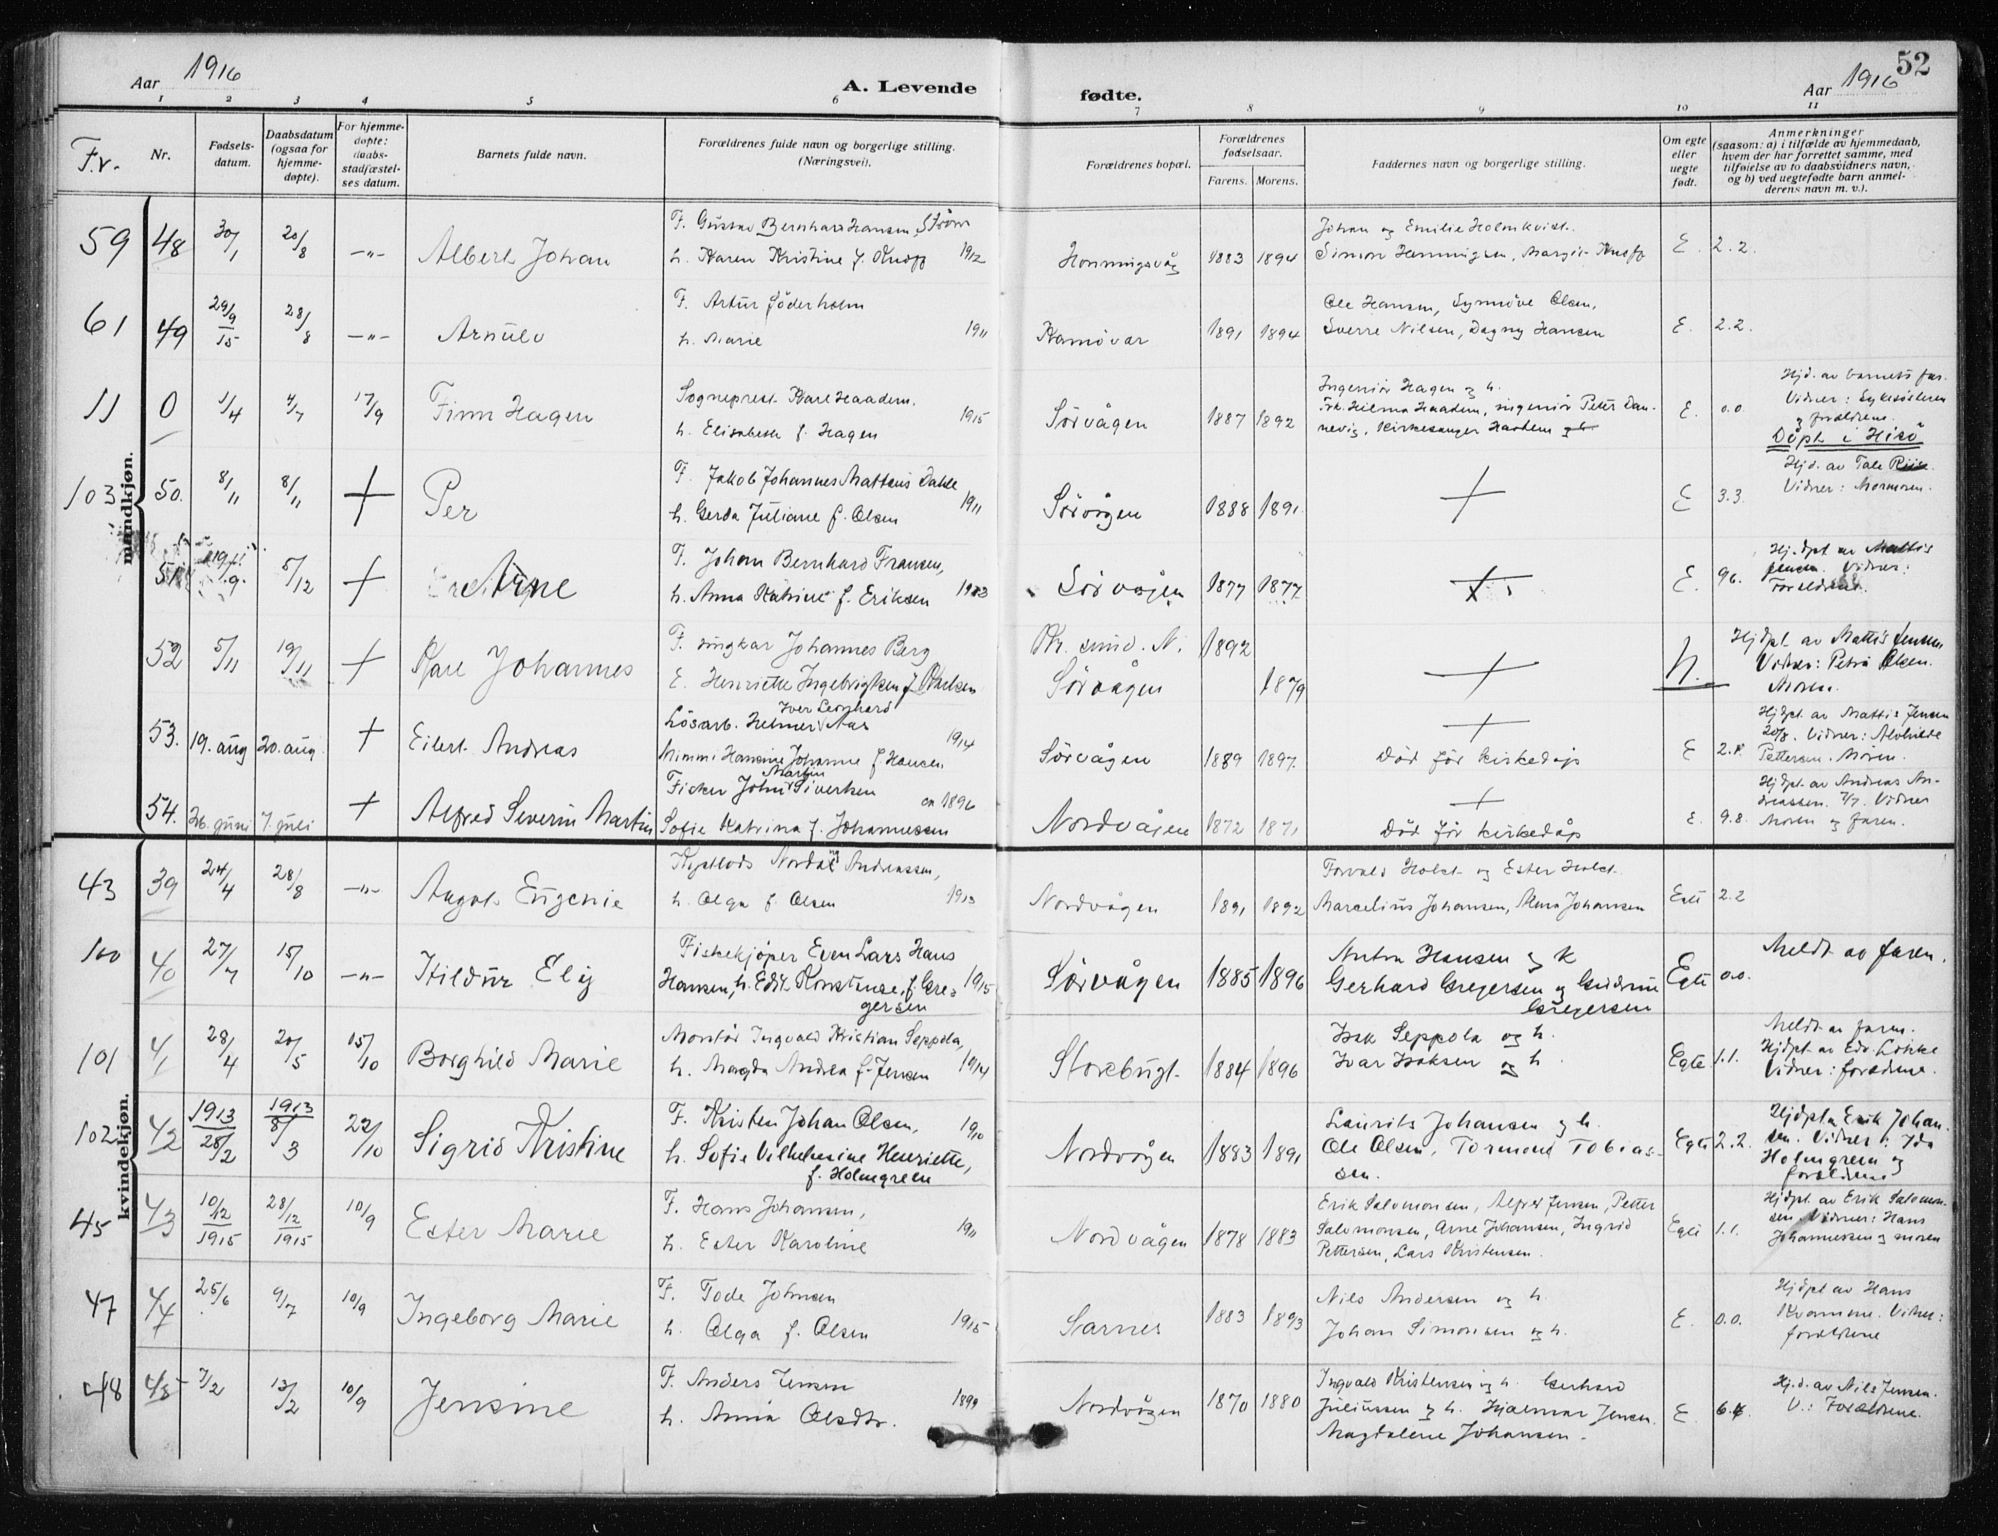 52
Aar 1916
A. Levende
fødte.
Aar 1916
1 2 3 4 5 6 7 8 9 10 11
Fr.
Nr.
Fødsels-
datum.
Daabsdatum
(ogsaa for
hjemme-
døpte).
For hjemme-
døpte:
daabs-
stadfæstel-
ses datum.
Barnets fulde navn.
Forældrenes fulde navn og borgerlige stilling.
(Næringsvei).
Forældrenes bopæl.
Forældrenes
fødselsaar.
Farens. Morens.
Faddernes navn og borgerlige stilling.
Om egte
eller
uegte
født.
Anmerkninger
(saasom: a) i tilfælde av hjemmedaab,
hvem der har forrettet samme, med
tilføielse av to daabsvidners navn,
og b) ved uegtefødte barn anmel-
derens navn m. v.).
mandkjøn.
59 48 30/1 20/8 -"- Albert Johan
F. Gustav Bernhard Hansen, Strøm
h. Karen Kristine f. Knopf 1912
Honningsvåg 1883 1894
Johan og Emilie Holmkvist.
Simon Henningsen, Margit Knopf
E 2.2.
61 49 29/9 15 28/8 -"- Arnulv
F. Artur Söderholm
h. Marie 1911
Kamøvær 1891 1894
Ole Hansen, Synnøve Olsen,
Sverre Nilsen, Dagny Hansen
E 2.2.
11 0 1/4 4/7 17/9 Finn Hagen
Sogneprest Kare Haadem.
h. Elisabeth f. Hagen 1915
Sørvågen 1887 1892
Ingeniør Hagen og h.
Frk. Hilma Haadem, ingeniør Peter Dan-
nevig, Kirkesanger Haadem
E. 0.0.
Hjd. av barnets far.
Vidner: Sykesøsteren
og forældrene.
Döpt i Hisö
103 50. 8/11 8/11 + Per
F. Jakob Johannes Matteus Dahle
h. Gerda Juliane f. Olsen 1911
Sørvågen 1888 1891
+
E 3.3.
Hjd. av Tale Riise.
Vidner: Mormoren.
51 5/12 + Arne
F. Johan Bernhard Fransen,
h. Anna Katrine f. Eriksen
Sørvågen 1877 1877
+
E. 96.
Hj.dpt. av Mattis
Jensen. Vidner:
Forældrene.
52 5/11 19/11 + Kare Johannes
F. ungkar Johannes Berg
E. Henriette Ingebrigtsen f. Karlsen
Kr. sund. N. 1892
Sørvågen 1879
+
N.
Hjdpt. av Mattis Jensen
Vidner: Petra Olsen.
Moren.
53. 19. aug 20. aug. + Eilert Andreas
Iver Leonhard
Løsarb. Helmer Aas 1914
Mimmi Hansine Johanne f. Hansen
Sørvågen 1889 1897.
+
Död för kirkedåp
E 2.
Hjdpt. av Mattis Jensen
20/8. Vidner: Alvhilde
Pettersen. Moren.
54. 26. juni 7. juli + Alfred Severin Martin
Martin
Fisker John Sivertsen ca 1896
Sofie Katrina f. Johannessen
Nordvågen 1872 1871
+
Död för kirkedåp
E. 9.8.
Hjdpt. av Andreas An-
dreassen. 7/7. Vidner
Moren og faren.
kvindekjøn.
43 39 24/4 28/8 -"- Aagot Eugenie
Kystlods Nordal Andreassen,
h. Olga f. Olsen 1913
Nordvågen 1891 1892
Torvald Holst og Ester Holst.
Marcelius Johansen, Alma Johansen
Egte 2.2
100 40 27/7 15/10 -"- Hildur Elly
Fiskekjøper Even Lars Hans
Hansen, h. Edit Konstanse, f. Gre- 1915
gersen
Sørvågen 1885 1896
Anton Hansen og k
Gerhard Gregersen og Gudrun
Gregersen
Egte 0.0.
Meldt av faren.
101 41 28/4 20/5 15/10 Borghild Marie
Montør Ingvald Kristian Seppola,
h. Magda Andrea f. Jensen 1914
Storebugt. 1884 1896
Isak Seppola og h.
Ivar Isaksen og h
Egte 1.1.
Meldt av faren.
Hjdpt. av Edv. Løkke
Vidner: forældrene.
102 42 1913 28/2 1913 8/3 22/10 Sigrid Kristine
F. Kristen Johan Olsen, 1910
h. Sofie Vilhelmine Henriette,
f. Holmgreen
Nordvågen 1883 1891
Laurits Johansen og h.
Ole Olsen, Tormod Tobias-
sen.
Egte 2.2.
Hjdpt. av Erik Johan-
sen. Vidner: Ida
Holmgreen og
forældrene
45 43 10/12 1915 28/12 1915 10/9 Ester Marie
F. Hans Johansen,
h. Ester Karoline 1911
Nordvågen 1878 1883
Erik Salomonsen, Alfred Jensen, Petter
Salomonsen, Arne Johansen, Ingrid
Pettersen, Lars Kristensen.
Egte 1.1.
Hjdpt. av Erik Salomon-
sen. Vidner: Hans
Johannessen og moren
47 44 25/6 9/7 10/9 Ingeborg Marie
F. Tode Johnsen
h. Olga f. Olsen 1915
Sarnes 1883 1893
Nils Andersen og h.
Johan Simonsen og h.
E. 0.0.
Hjdpt av Hans
Kvamme. Vidner:
forældrene
48 45 7/2 13/2 10/9 Jensine
F. Anders Jensen 1899
h. Anna Olsdtr.
Nordvågen 1870 1880
Ingvald Kristensen og h. Gerhard
Juliussen og h. Hjalmar Jensen.
Magdalene Johansen.
E 6.
Hj.d. av Nils Jensen.
V.: Forældrene.